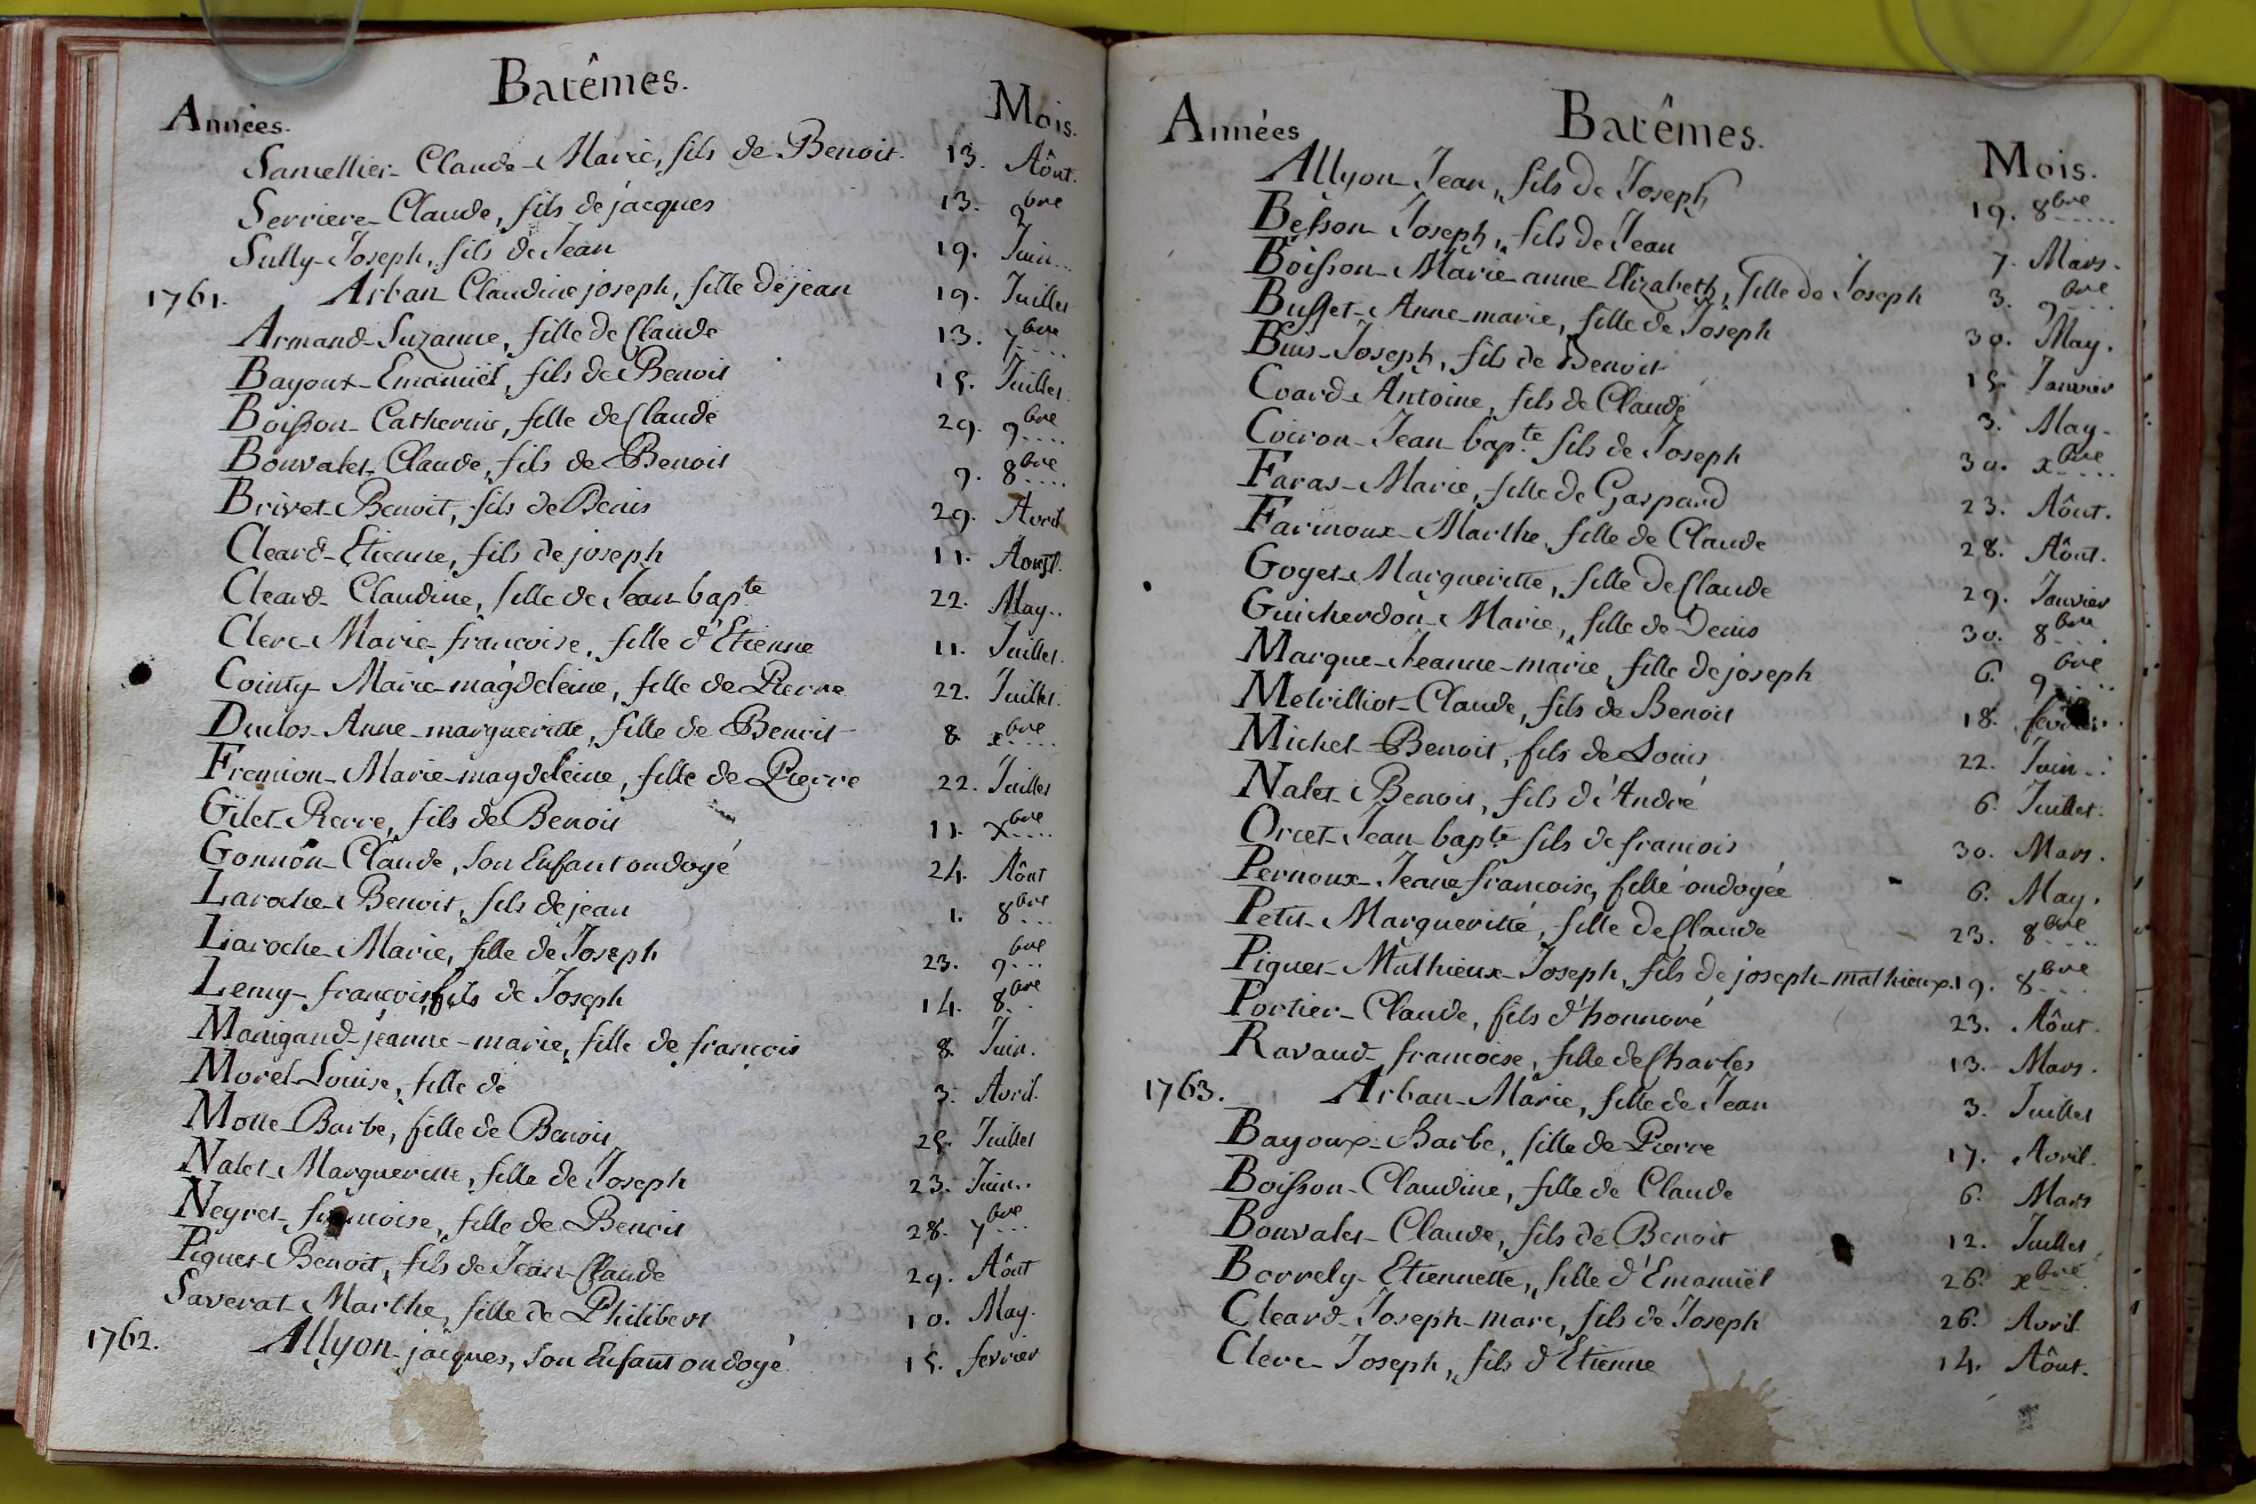 Batêmes.
Années. Mois.
Samellier Claude-Marie, fils de Benoit. 13. Aôut.
Serriere-Claude, fils de jacques 13. 9bre
Sully-Joseph, fils de Jean 19. Juin...
1761. Arban Claudine joseph, fille de jean 19. Juillet
Armand-Suzanne, fille de Claude 13. 7bre
Bayoux-Emanüel, fils de Benoit 15. Juillet.
Boisson-Catherine, fille de Claude 29. 9bre
Bonvalet-Claude, fils de Benoit 9. 8bre
Brivet-Benoit, fils de Denis 29. Avril
Cleard-Etienne, fils de joseph 11. Aoust.
Cleard-Claudine, fille de Jean-bapte 22. May..
Clerc-Marie-francoise, fille d'Etienne 11. Juillet.
Cointy-Marie-magdeleine, fille de Pierre 22. Juillet.
Duclos-Anne-margueritte, fille de Benoit 8. xbre
Fremion-Marie-magdeleine, fille de Pierre 22. Juillet
Gilet-Pierre, fils de Benoit 11. Xbre
Gonnon-Claude, Son Enfant ondoyé 24. Aôut
Laroche-Benoit, fils de jean 1. 8bre
Laroche-Marie, fille de Joseph 23. 9bre
Lemy-francois, fils de Joseph 14. 8bre
Manigand-jeanne-marie, fille de françois 8. Juin.
Morel-Louise, fille de 3. Avril.
Motte-Barbe, fille de Benoit 25. Juillet
Nalet-Margueritte, fille de Joseph 23. Juin..
Neyret-francoise, fille de Benoit 28. 7bre
Piquet-Benoit, fils de Jean-Claude 29. Aôut
Saverat-Marthe, fille de Philibert 10. May.
1762. Allyon-jacques, Son Enfant ondoyé. 15. fevrier
Années Batêmes. Mois.
Allyon-Jean, fils de Joseph 19. 8bre
Besson-Joseph, fils de Jean 7. Mars.
Boisson-Marie-anne-Elizabeth, fille de Joseph 3. 9bre
Buffet-Anne-marie, fille de Joseph 30. May.
Buis-Joseph, fils de Benoit 15. Janvier
Coard-Antoine, fils de Claude 3. May.
Coiron-Jean-bapte fils de Joseph 30. xbre
Faras-Marie, fille de Gaspard 23. Aôut.
Farinoux-Marthe, fille de Claude 28. Aôut.
Goyet-Margueritte, fille de Claude 29. Janvier
Guicherdon-Marie, fille de Denis 30. 8bre
Marque-Jeanne-marie, fille de joseph 6. 9bre
Melvilliot-Claude, fils de Benoit 18. fevrier.
Michel-Benoit, fils de Louis 22. Juin..
Nalet-Benoit, fils d'André 6. Juillet.
Orcet-Jean-bapte fils de francois 30. Mars.
Pernoux-Jeane francoise, fille ondoyée 6. May.
Petit-Margueritte, fille de Claude 23. 8bre
Piquet-Mathieux-Joseph, fils de joseph-mathieux. 19. 8bre
Portier-Claude, fils d'honnoré 23. Aôut.
Ravaud-francoise, fille de Charles 13. Mars.
1763. Arban-Marie, fille de Jean 3. Juillet
Bayoux-Barbe, fille de Pierre 17. Avril.
Boisson-Claudine, fille de Claude 6. Mars
Bonvalet-Claude, fils de Benoit 12. Juillet
Borrely-Etiennette, fille d'Emanüel 26. xbre
Cleard-Joseph-marc, fils de Joseph 26. Avril
Clerc-Joseph, fils d'Etienne 14. Aôut.